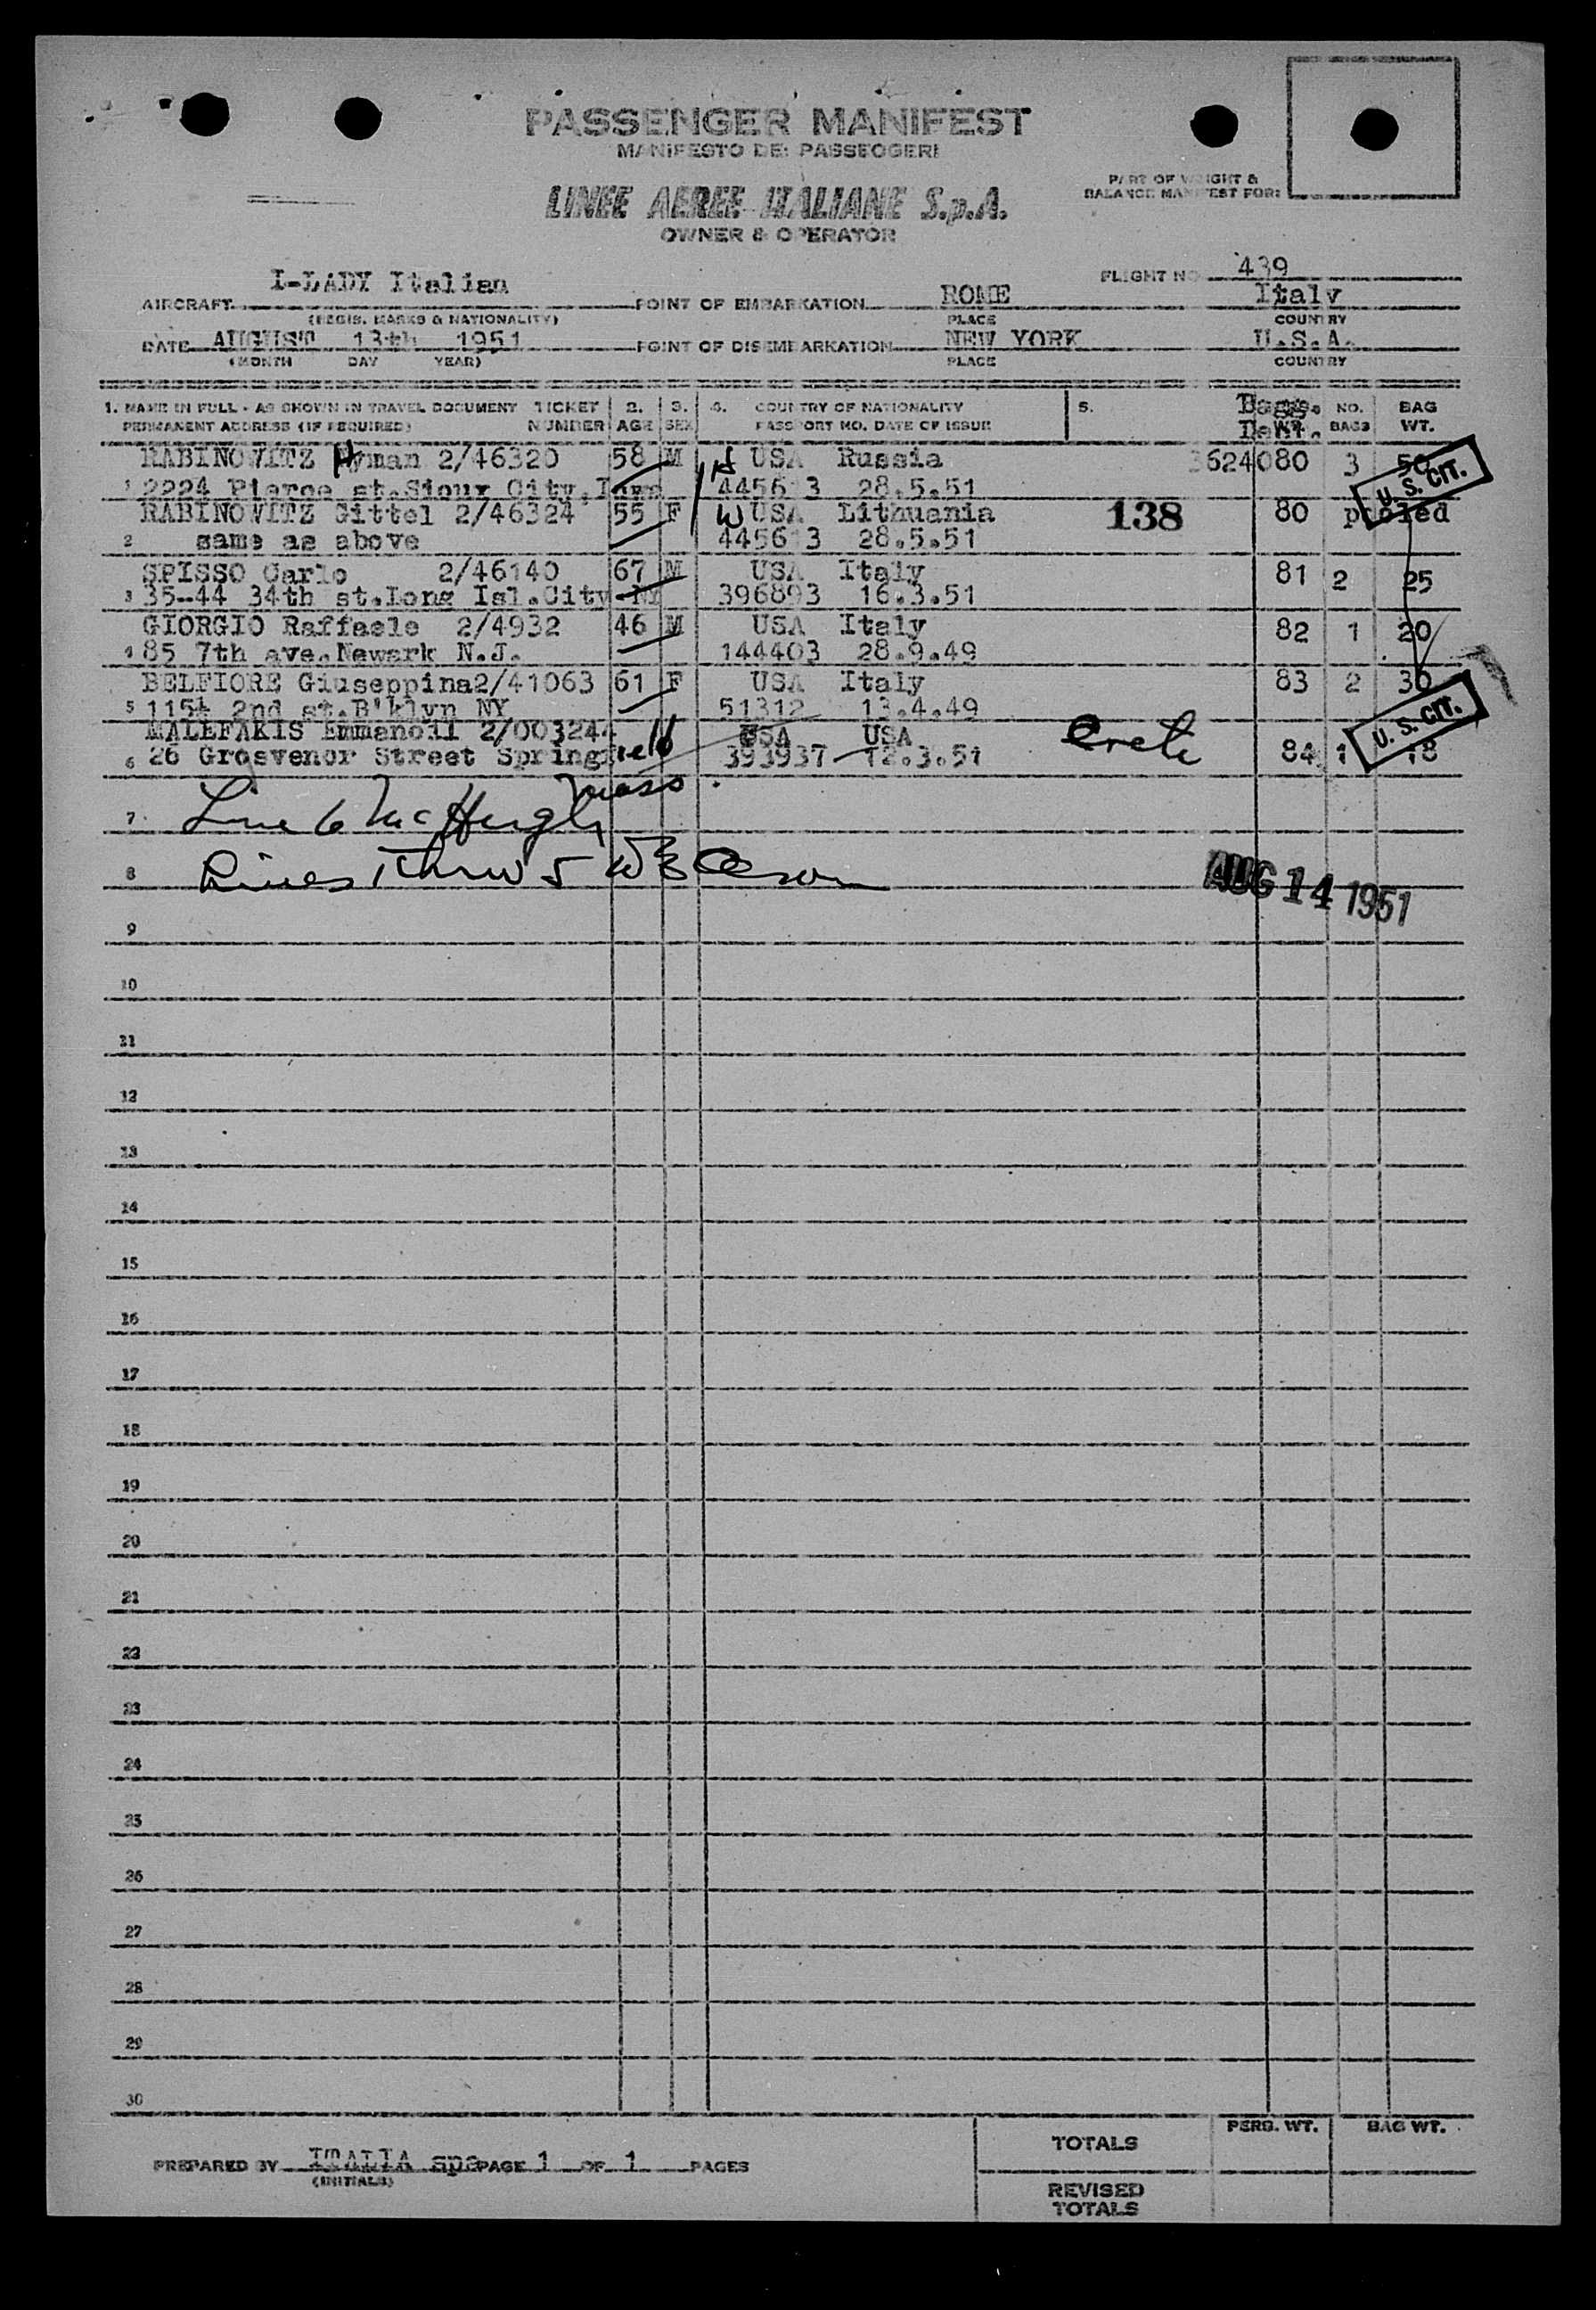 PASSENGER MANIFEST
MANIFESTO DEI PASSEGGERI
PART OF WEIGHT &
BALANCE MANIFEST FOR:
LINEE AEREE ITALIANE S.p.A.
OWNER & OPERATOR
AIRCRAFT I-LADY Italian POINT OF EMBARKATION ROME FLIGHT NO 439 Italy
(REGIS. MARKS & NATIONALITY) PLACE COUNTRY
DATE AUGUST 13th 1951 POINT OF DISEMBARKATION NEW YORK U.S.A.
(MONTH DAY YEAR) PLACE COUNTRY
1. NAME IN FULL - AS SHOWN IN TRAVEL DOCUMENT TICKET 2. 3. 4. COUNTRY OF NATIONALITY 5. Bagg. NO. BAG
PERMANENT ADDRESS (IF REQUIRED) NUMBER AGE SEX PASSPORT NO. DATE OF ISSUE WT. BAGS WT.
RABINOWITZ Hyman 2/46320 58 M H USA Russia 3624080 3 50
1 2224 Pierce st.Sioux City,Iowa 445613 28.5.51 U. S. CIT.
RABINOWITZ Gittel 2/46324 55 F W USA Lithuania 138 80 pooled
2 same as above 445613 28.5.51
SPISSO Carlo 2/46140 67 M USA Italy 81 2 25
3 35-44 34th st.Long Isl.City-NY 396893 16.3.51
GIORGIO Raffaele 2/4932 46 M USA Italy 82 1 20
4 85 7th ave.Newark N.J. 144403 28.9.49
BELFIORE Giuseppina 2/41063 61 F USA Italy 83 2 30
5 115t 2nd st.B'klyn NY 51312 13.4.49
MALEFAKIS Emmanoil 2/003244 USA USA Crete U. S. CIT.
6 26 Grosvenor Street Springfield 393937 12.3.51 84 1 18
Mass.
7 Line 6 McHugh
8 Lines 1 thru 5
AUG 14 1951
9
10
11
12
13
14
15
16
17
18
19
20
21
22
23
24
25
26
27
28
29
30
PERS. WT. BAG WT.
TOTALS
PREPARED BY ITALIA spa PAGE 1 OF 1 PAGES
(INITIALS)
REVISED
TOTALS